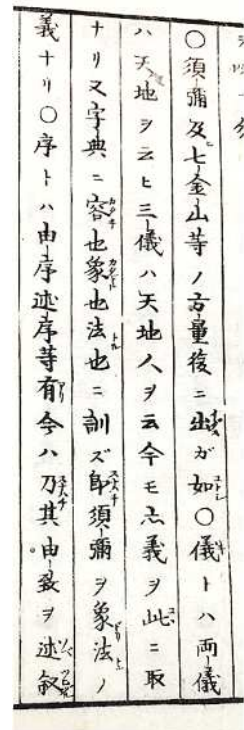 〇須彌及七金山等ノ方量後ニ出ガ如〇儀トハ両儀
ハ天地ヲ云ヒ三儀ハ天地人ヲ云今モ其義ヲ此ニ取
ナリ又字典ニ容也象也法也ニ訓ズ即須彌ヲ象法ノ
義ナリ〇序トハ由序述序等有今ハ乃其由致ヲ述叙